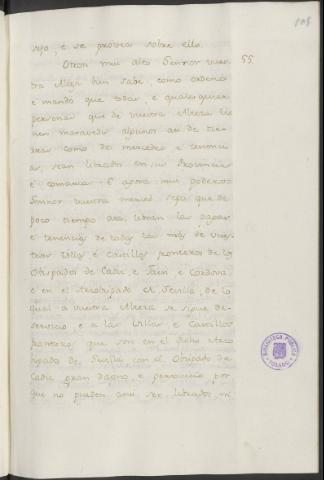 sejo, e se provea sobre ello.
Otrosi mui alto Sennor vues- 55.
tra Alteza bien sabe, como ordenó
e mandó que todas, e qualesquier
personas que de vuestra Alteza tie
nen maravedis algunos asi de tier
ras como de mercedes e tenencias
sean librados en su Provincia
e comarca. E agora mui poderoso
Sennor vuestra merced sepa que de
poco tiempo acá, libran las pagas
e tenencias de todas las mas de vues
tras Villas e Castillos fronteros de los
Obispados de Cadiz, e Jaen, e Cordova,
e en el Arzobispado de Sevilla, de lo
qual a vuestra Alteza se sigue de-
servicio, e a las Villas, e Castillos
fronteros que son en el dicho Arzo
bispado de Sevilla con el Obispado de
Cadiz gran danno, e perjuicio por
que no pueden ansi ser librados, ni
BIBLIOTECA PUBLICA
TOLEDO